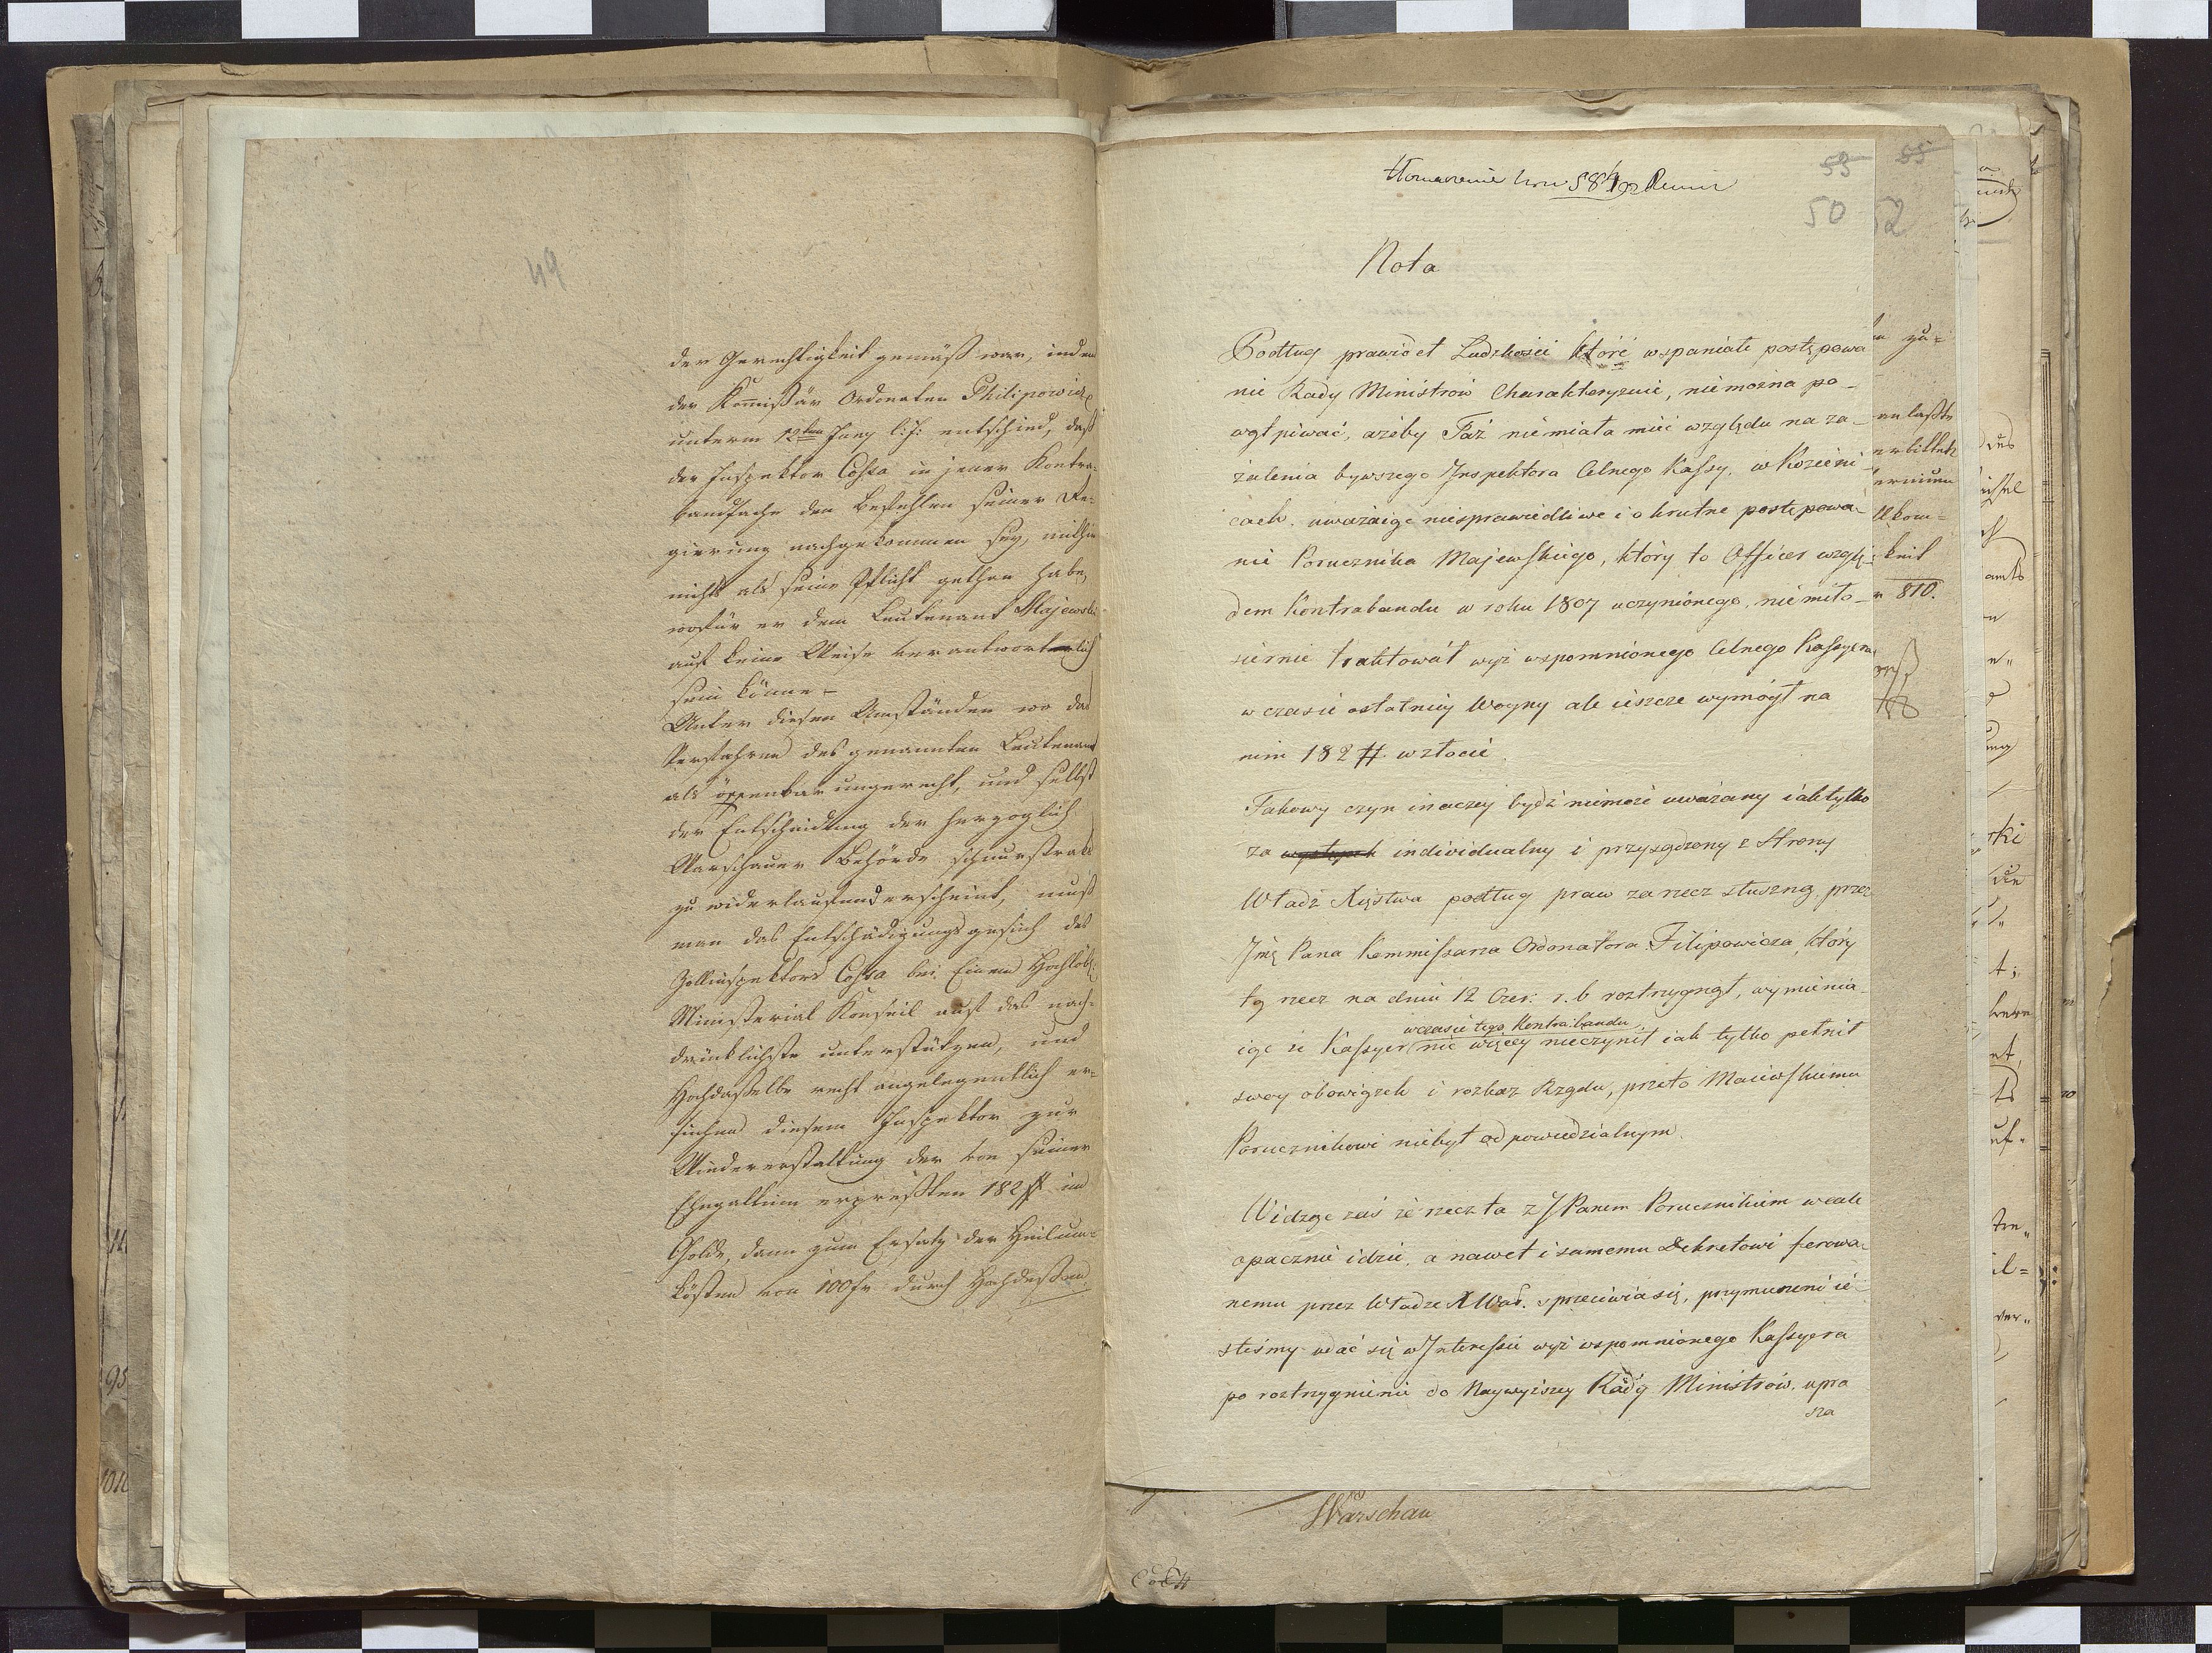 49
der Gerechtigkeit gemäß war, indem
der Kom̄issär Ordonaten Philipowicz
unterm 12ten Juny l: J: entschied, daß
der Inspektor Cossa in jener Kontra-
bandsache den Befehlen seiner Re-
gierung nachgekommen sey, mithin
nichts als seine Pflicht gethan habe,
wofür er dem Leutenant Majewski
auf keine Weise verantwortlich
sein könne –
Unter diesen Umständen wo das
Verfahren des genannten Leutenant
als offenbar ungerecht, und selbst
der Entscheidung der herzoglich
Warschauer Behörde schnurstraks
zu widerlaufend erscheint, muß
man das Entschädigungsgesuch des
Zollinspektors Cossa bei Einem Hochlöbl:
Ministerial Konseil auf das nach-
drücklichste unterstützen, und
Hochdasselbe recht angelegentlich er-
suchen diesem Inspektor zur
Wiedererstattung der von seiner
Ehegattin erpreßten 182 # in
Golde, dann zum Ersatz der Heilun-
kösten von 100 fr durch Hochdessen
53
50
Nota
Podług prawideł Ludzkości które wspaniałe postępowa
nie Rady Ministrow Charakteryzuie, nie można po-
wątpiwać, ażeby Taż niemiała mieć względu na za-
żalenia bywszego Inspektora Celnego Kassy, w Kozieni-
cach. uważaiąc niesprawiedliwe i okrutne postępowa-
nie Porucznika Majewskiego, który to Officer wzglę-
dem Kontrabandu w roku 1807 uczynionego, niemiło-
siernie traktował wyż wspomnionego Celnego Kassyera
w czasie ostatniey Woyny ale ieszcze wymógł na
nim 182 # w złocie.
Takowy czyn inaczey bydź niemoże uważany iak tylko
za występek individualny i przysądzony z Strony
Władz Xięstwa podług praw za rzecz słuszną przez
Jmć Pana Kommissarza Ordonatora Filipowicza, który
tą rzecz na dniu 12 Czer: r. b roztrzygnął, wymienia-
iąc że Kassyer wczasie tego Kontrabandu nic więcey nieczynił iak tylko pełnił
swoy obowiązek i rozkaz Rządu, przeto Maiewskiemu
Porucznikowi niebył odpowiedzialnym.
Widząc zaś że rzecz ta z JPanem Porucznikiem wcale
opacznie idzie, a nawet i samemu Dekretowi ferowa-
nemu przez Władze X War. sprzeciwia się, przymuszeni ie-
steśmy udać się w Interessie wyż wspomnionego Kassyera
po roztrzygnienie do Naywyższey Rady Ministrów, upra
sza
55
52
zu-
anlaßte
keit
810.
Warschau